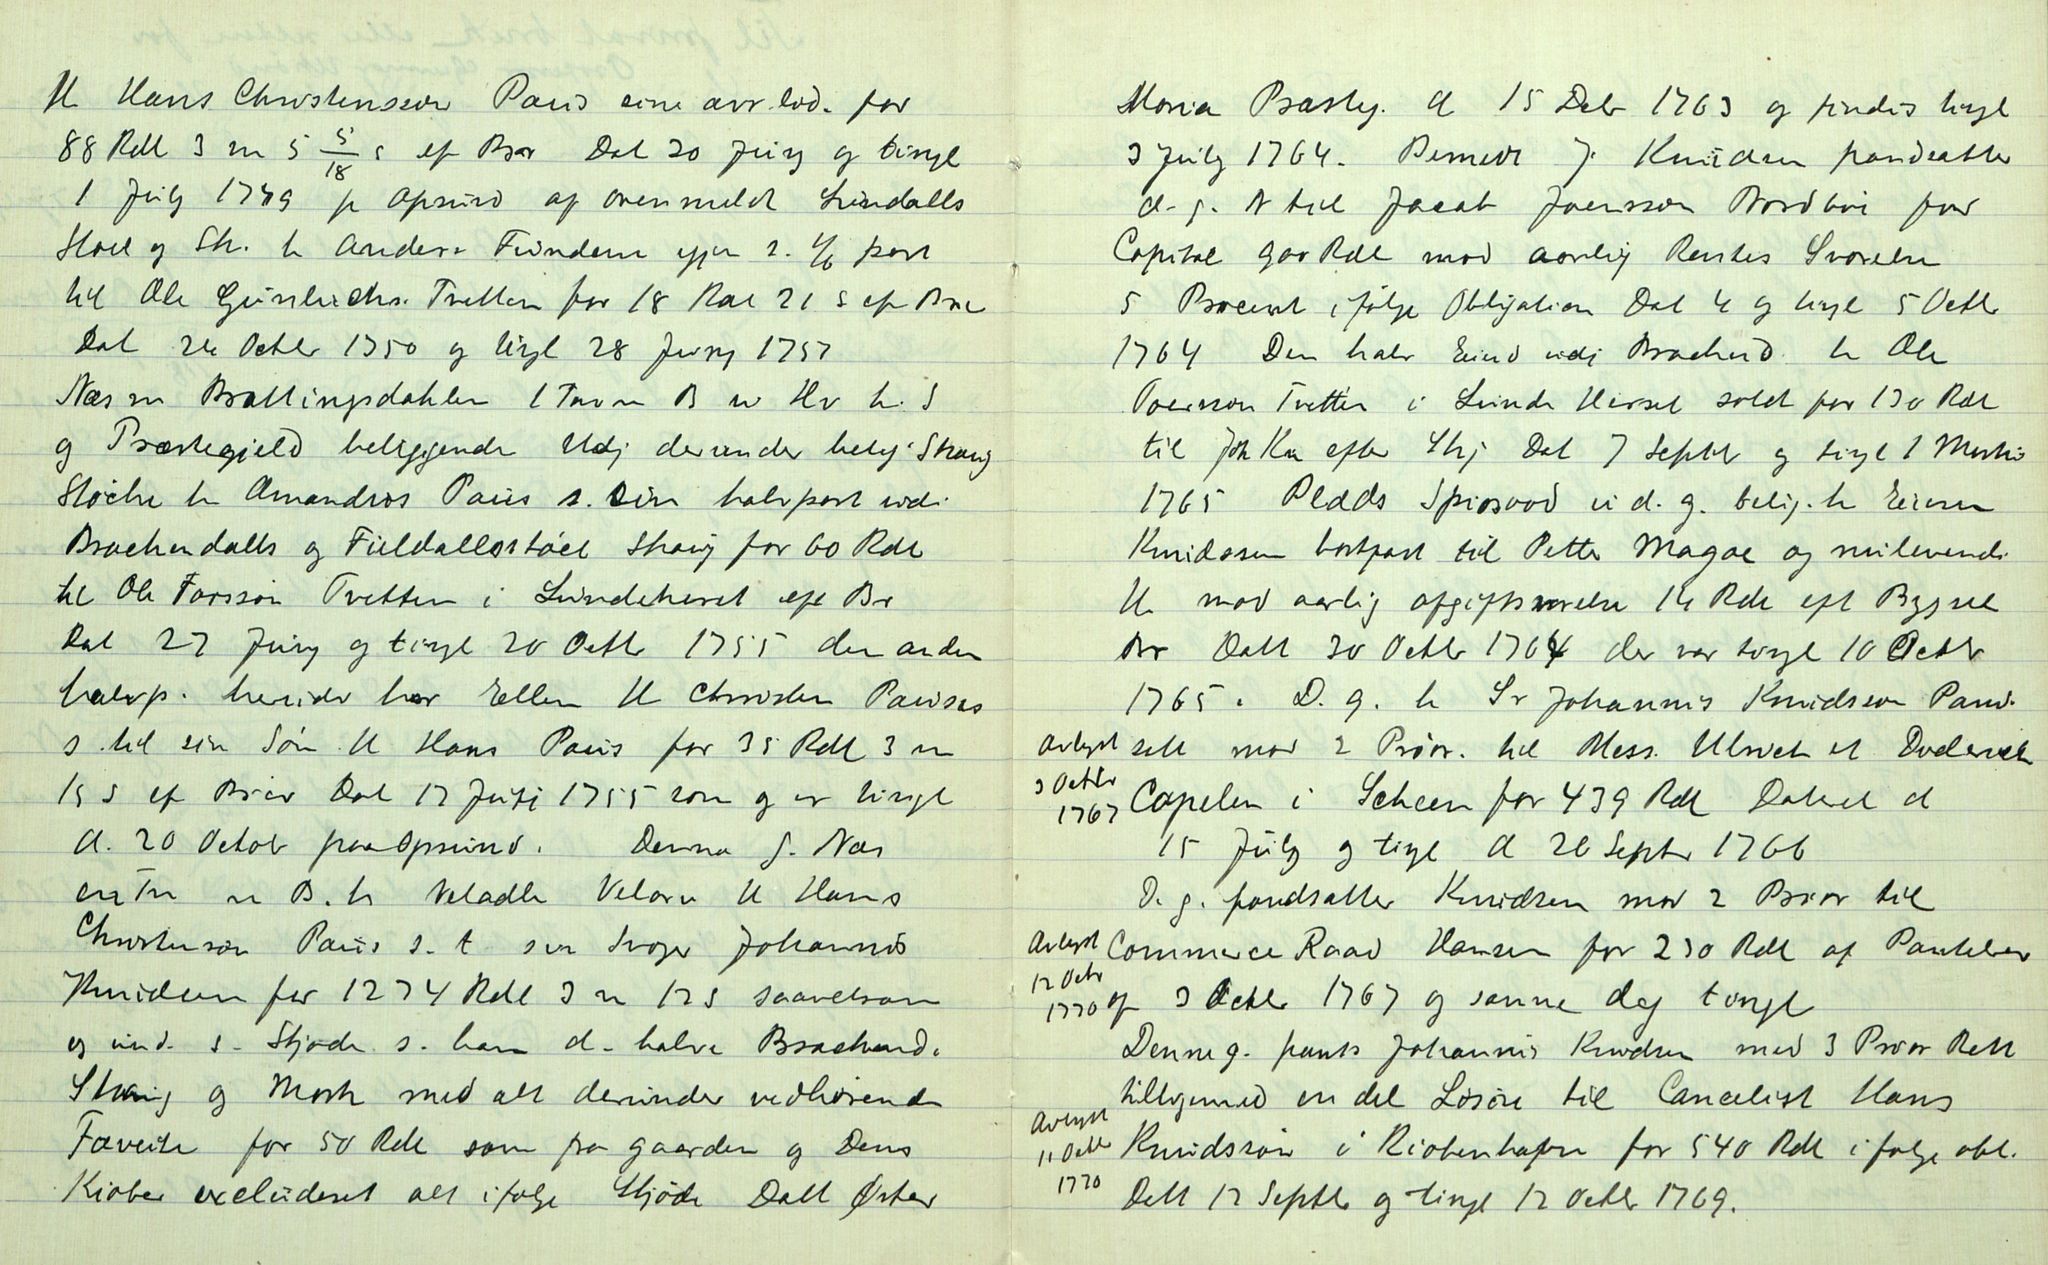 H Hans Christensson Paus sine arv. lod. for
88 Rdl 3 m 5 5/18 s ef Brev Dat 20 Juny og tingl
1 July 1749 på opsund af ovenmeldt Lundalls
Støel og Sk. h Anders Fundem ejer s. 1/6 part
til Ole Gunleichs. Tvetten for 18 Rdl 21 s ef Brev
Dat 24 Octbr 1750 og tingl 28 Juny 1757
Næs m Brattingsdahlen 1 Tønn B u Hv h. S
og Præstegield beliggende Udj derunder belig Skoug
Støche h Amandros Paus s. sin halvpart udi
Brachendalls og Fieldallsstøel Skoug for 60 Rdl
til Ole Torsson Tvetten i Lundeherret eft Br
Dat 27 Juny og tingl 20 Octbr 1755 den anden
halvp. herudi har Ellen H Christen Pauses
s. til sin Søn H Hans Paus for 35 Rdl 3 m
15 s ef Brev Dat 17 July 1755 som og er tingl
d. 20 Octob paa Opsund. Denne G. Næs
en Tn u B. h Veladle Velærv H Hans
Christensøn Paus s. t sin Svoger Johannis
Knudsen for 1274 Rdl 3 m 12 s saavelsom
og und. s. Skjøde s. ham d. halve Brachend.
Skoug og Mark med alt derunder vedhørende
Fæveite for 50 Rdl som fra gaarden og Dens
Kiøber excluderet alt ifølge Skjøde Datt Øster
Moria Præsteg. d 15 Debr 1763 og findes tingl
3 July 1764. Bemeldt J. Knudsen pandsatter
d. g. N til Jacob Joensson Nordbøe for
Capital 900 Rdl mod aarlig Rentes Svarelse
5 Procent ifølge Obligation Dat 4 og tingl 5 Octbr
1764 Den halv Eiend udi Brachend. h Ole
Toersson Tvetten i Lunde Herret solt for 130 Rdl
til Joh Kn efter Skj Dat 7 Septbr og tingl 1 Martii
1765 Pladds Spirsood u d. g. belig. h Eieren
Knudssen bortfæst til Petter Magae og nulevende
H mod aarlig afgiftsvarelse 14 Rdl eft Bygsel
Brv Datt 30 Octbr 1764 der var tingl 10 Octbr
1765. D. g. h Sr Johannis Knudsson Pand.
Avlyst sett mod 2 Prior. til Mess. Ulrich et Diderich
3 Octbr
1767 Capelen i Scheen for 439 Rdl Dateret d
15 July og tingl d 26 Septr 1766
D. g. pandsatter Knudsen mod 2 Prior til
Avlyst Commerce Raad Hansen for 230 Rdl af Pantebrev
12 Octr
1770 af 3 Octbr 1767 og samme dag tingl
Denne g. pants Johannis Knudsen med 3 Prior Rett
tilligemed en del Løsøre til Cancelist Hans
Avlyst
11 Octbr Knudssøn i Kiøbenhafn for 540 Rdl i følge obl.
1770
Dett 12 Septbr og tingl 12 Octbr 1769.